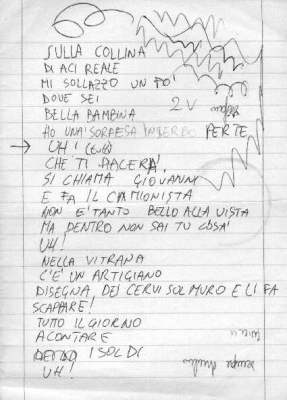 SULLA COLLINA
DI ACI REALE
MI SOLLAZZO UN PO'
DOVE SEI
BELLA BAMBINA
2 V
HO UNA SORPRESA IN SERBO PER TE
→ UH! (tutti)
CHE TI PIACERÀ!
SI CHIAMA GIOVANNI
E FA IL CAMIONISTA
NON E' TANTO BELLO ALLA VISTA
MA DENTRO NON SAI TU COSA'
UH!
NELLA VITRANA
C'È UN ARTIGIANO
DISEGNA DEI CERVI SUL MURO E LI FA
SCAPPARE!
TUTTO IL GIORNO
A CONTARE
I SOLDI
UH!